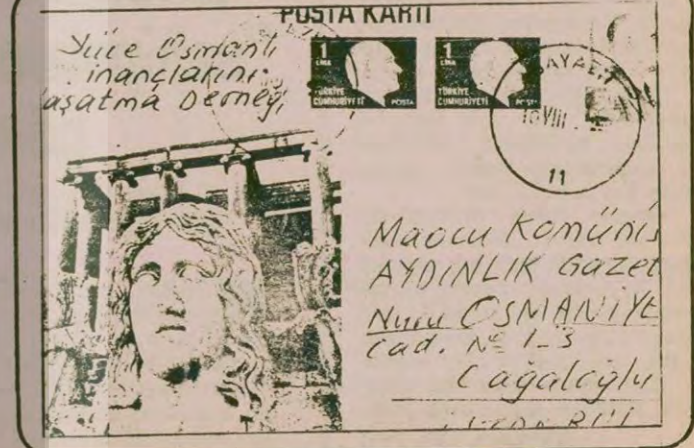 POSTA KARTI
Yüce Osmanlı
inançlarını
aşatma Derneği
1
LİRA
TÜRKİYE
CUMHURİYETİ
POSTA
1
LİRA
TÜRKİYE
CUMHURİYETİ
POSTA
VIII
11
Maocu Komünis
AYDINLIK Gazet
Nuru OSMANİYE
Cad. № 1-3
Cağaloğlu